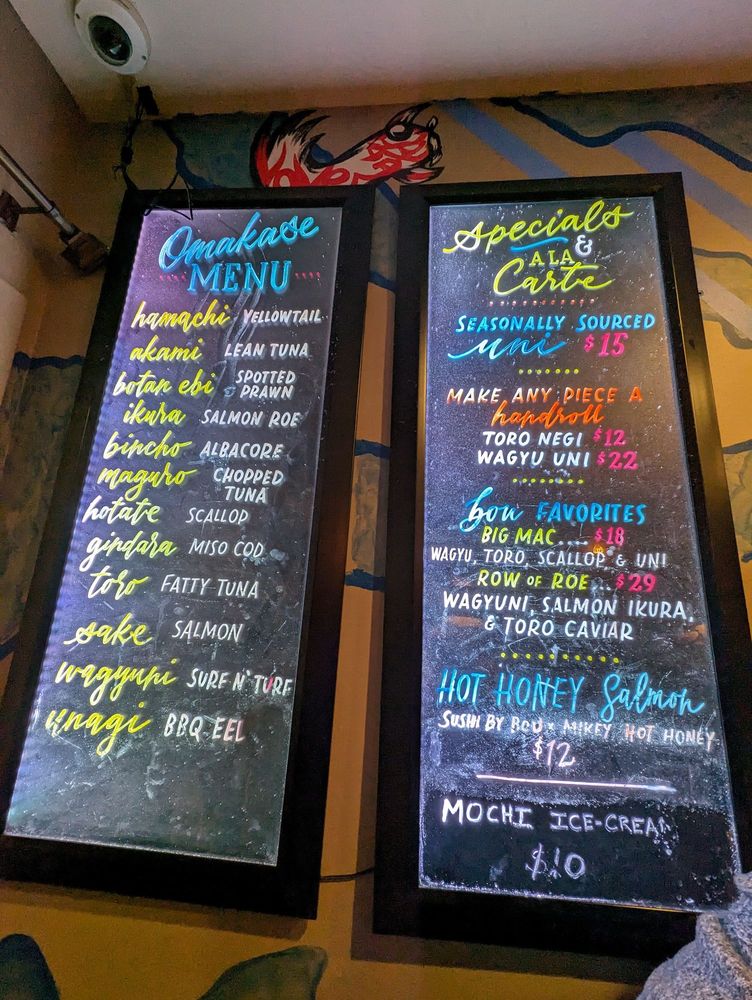 Omakase
MENU
hamachi YELLOWTAIL
akami LEAN TUNA
botan ebi SPOTTED PRAWN
ikura SALMON ROE
bincho ALBACORE
maguro CHOPPED TUNA
hotate SCALLOP
gindara MISO COD
toro FATTY TUNA
sake SALMON
wagyuni SURF N' TURF
unagi BBQ EEL
Specials
&
A LA
Carte
SEASONALLY SOURCED
uni $15
MAKE ANY PIECE A
handroll
TORO NEGI $12
WAGYU UNI $22
bou FAVORITES
BIG MAC.... $18
WAGYU, TORO, SCALLOP & UNI
ROW OF ROE... $29
WAGYUNI, SALMON IKURA,
& TORO CAVIAR
HOT HONEY Salmon
SUSHI BY BOU x MIKEY HOT HONEY
$12
MOCHI ICE-CREAM
$10